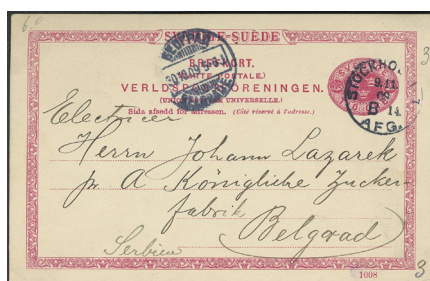 60
3
SVERIGE-SUÈDE
BREFKORT.
(CARTE POSTALE.)
VERLDSPOSTFÖRENINGEN.
(UNION POSTALE UNIVERSELLE.)
Sida afsedd för adressen. (Côté réservé à l'adresse.)
14.
AFG.
Herrn Johann Lazarek
pr. A Königliche Zucker-
fabrik
Belgrad
Serbien
1008
3